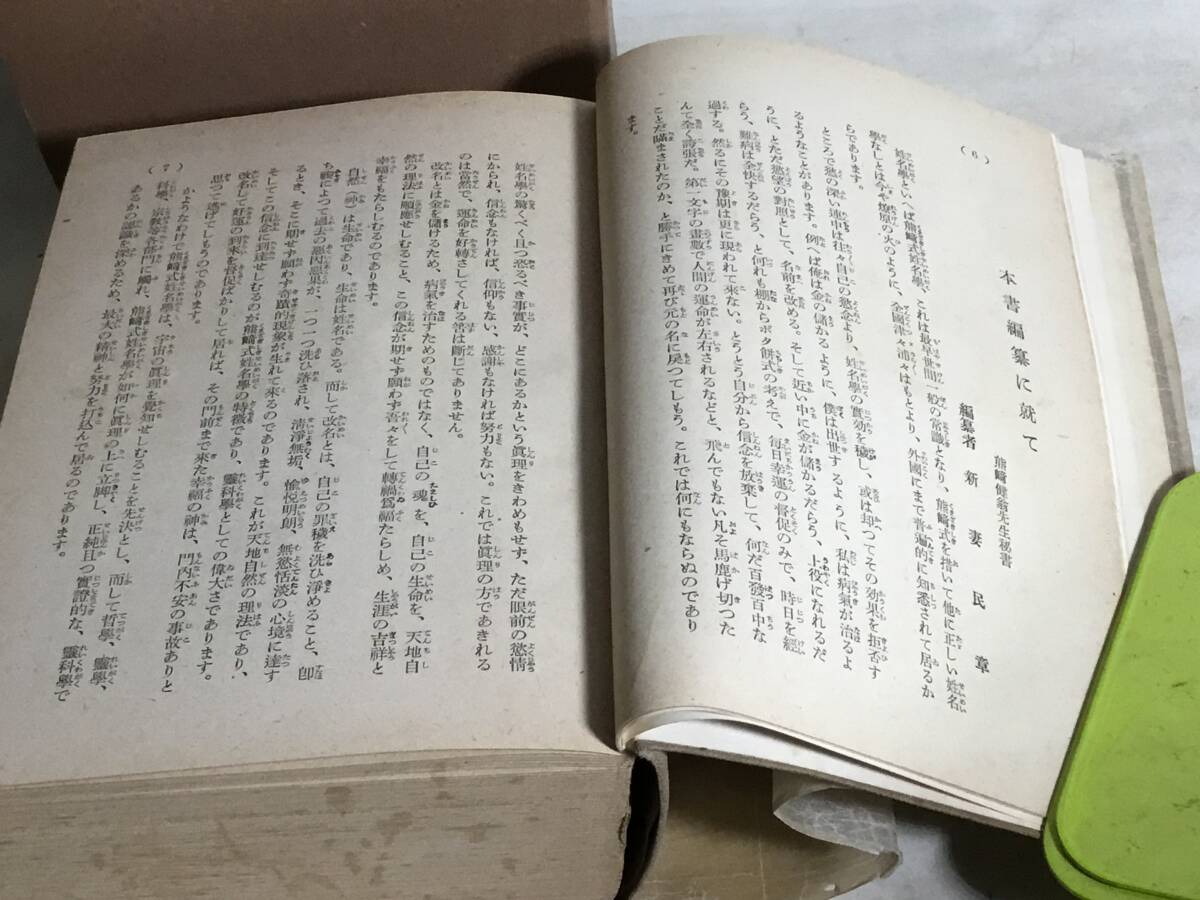 (6)
本書編纂に就て
熊﨑健翁先生秘書
編纂者 新妻民章
姓名學といへば熊﨑式姓名學、これは最早世間一般の常識となり、熊﨑式を措いて他に正しい姓名
學なしとは今や燎原の火のように、全國津々浦々はもとより、外國にまで普遍的に知悉されて居るか
らであります。
ところで慾の深い連中は往々自己の慾念より、姓名學の實効を穢し、或は却つてその効果を拒否す
るようなことがあります。例えば俺は金の儲かるように、僕は出世するように、私は病氣が治るよ
うに、とただ慾望の對照として、名前を改める。そして近い中に金が儲かるだらう、上役になれるだ
らう、難病は全快するだらう、と何れも棚からボタ餅式の考えで、毎日幸運の督促のみで、時日を經
過する。然るにその豫期は更に現われて來ない。とうとう自分から信念を放棄して、何だ百發百中な
んて全く誇張だ。第一文字の畫數で人間の運命が左右されるなどと、飛んでもない凡そ馬鹿げ切つた
ことだ瞞まされたのか、と勝手にきめて再び元の名に戻つてしもう。これでは何にもならぬのであり
ます。
姓名學の驚くべく且つ恐るべき事實が、どこにあるかという眞理をきわめもせず、ただ眼前の慾情
にかられ、信念もなければ、信仰もない、感謝もなければ努力もない。これでは眞理の方であきれる
のは當然で、運命を好轉さしてくれる筈は斷じてありません。
改名とは金を儲けるため、病氣を治すためのものではなく、自己の魂を、自己の生命を、天地自
然の理法に順應せしむること、この信念が期せず願わず吾々をして轉禍爲福たらしめ、生涯の吉祥と
幸福をもたらしむるのであります。
自然(神)は生命であり、生命は姓名である。而して改名とは、自己の罪穢を洗ひ淨めること、卽
ち禊によつて過去の因惡果が、一つ一つ洗ひ落され、清淨無垢、愉悦明朗、無慾恬淡の心境に達す
るとき、そこに期せず願わず奇蹟的現象が生れて來るのであります。これが天地自然の理法であり、
そしてこの信念に到達せしむるのが熊﨑式姓名學の特徴であり、靈科學としての偉大さであります。
改名して好運の到來を督促ばかりして居れば、その門前まで來た幸福の神は、門內不安の事故ありと
思つて逃げてしもうのであります。
かようなわけで熊﨑式姓名學は、宇宙の眞理を覺知せしむることを先決とし、而して哲學、靈學、
科學、宗敎等各部門に觸れ、熊﨑式姓名學が如何に眞理の上に立脚し、正純且つ實證的な、靈科學で
あるかの認識を深めるため、最大の精神と努力を打込んで居るのであります。
(7)